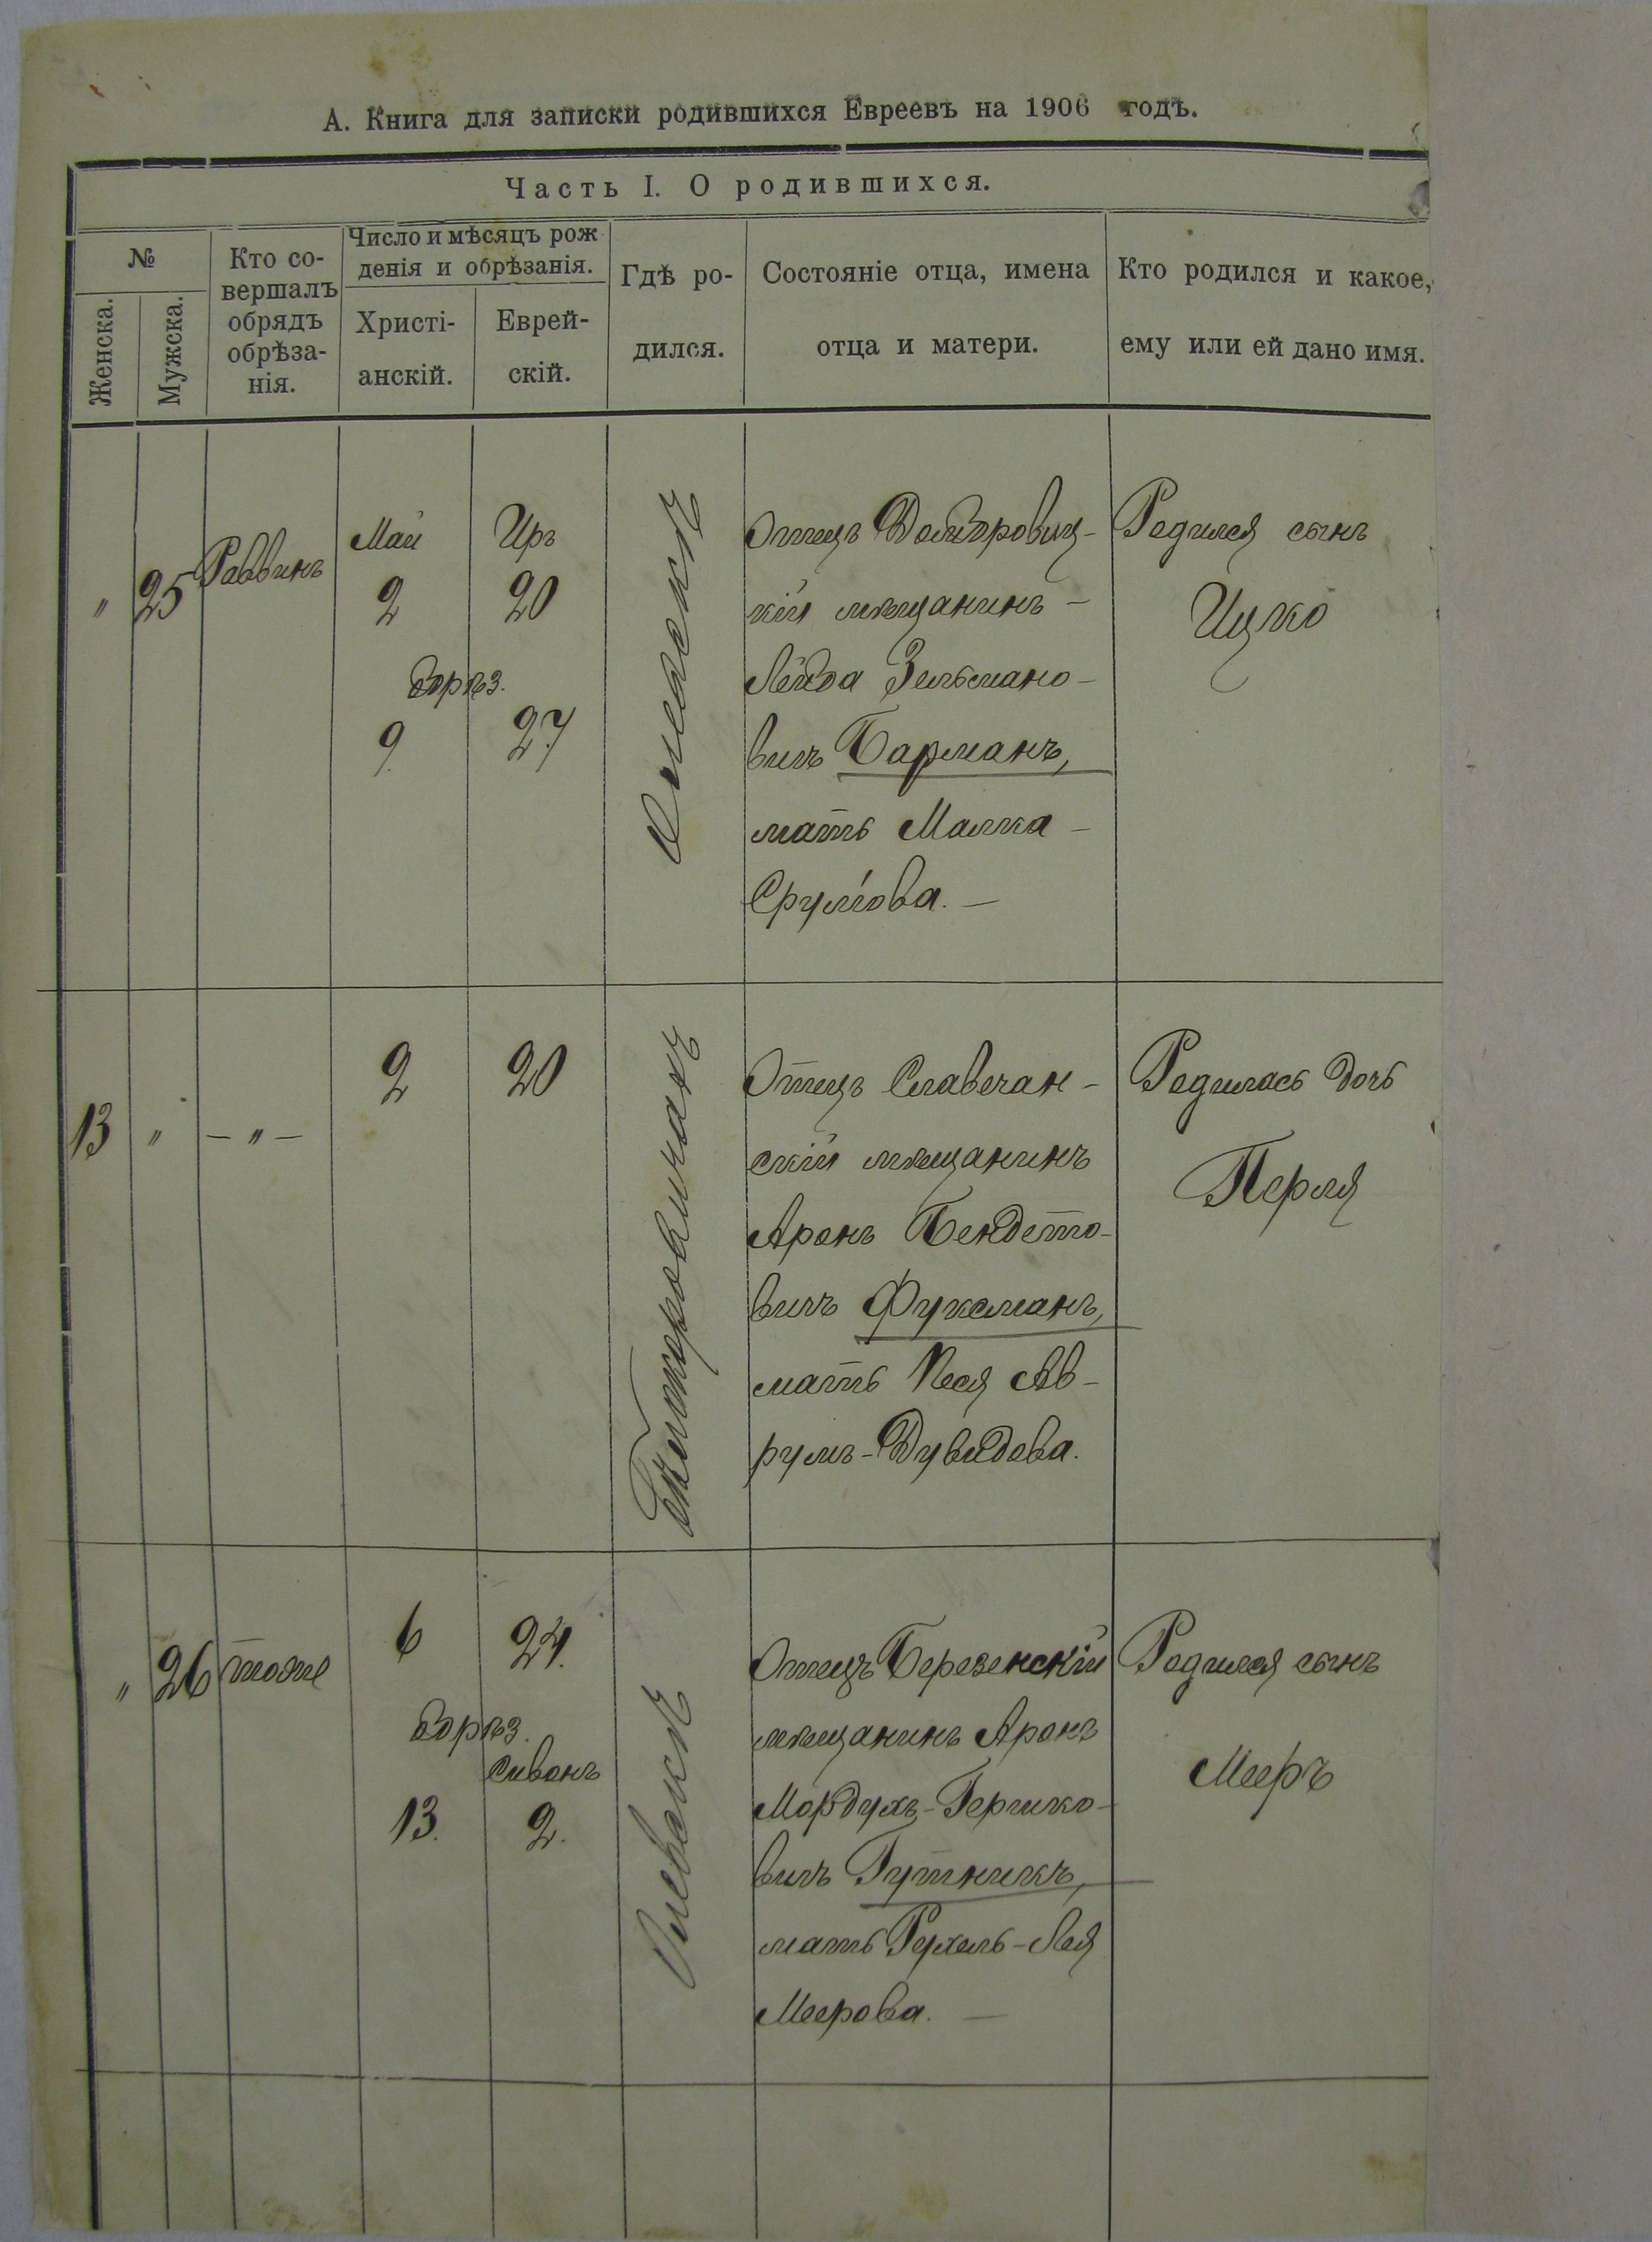 А. Книга для записки родившихся Евреевъ на 1906 годъ.
Часть I. О родившихся.
№
Женска.
Мужска.
Кто со-
вершалъ
обрядъ
обрѣза-
нія.
Число и мѣсяцъ рож
денія и обрѣзанія.
Христі-
анскій.
Еврей-
скій.
Гдѣ ро-
дился.
Состояніе отца, имена
отца и матери.
Кто родился и какое,
ему или ей дано имя.
"
25
Раввинъ
Май
2
обрѣз.
9
Иръ
20
27
Отецъ Домбровиц-
кій мѣщанинъ –
Лейба Зельмано-
вичъ Барманъ,
мать Малка –
Срулiова. –
Родился сынъ
Ицко
13
"
– " –
2
20
Отецъ Славечан-
скій мѣщанинъ
Аронъ Бендето-
вичъ Фуксманъ,
мать Песя Ав-
румъ-Дувидова.
Родилась дочь
Перля
"
26
тоже
6
обрѣз.
13.
24.
Сиванъ
2.
Олевскъ
Отецъ Березенскій
мѣщанинъ Аронъ
Мордухъ-Гершко-
вичъ Гутникъ,
мать Рухель-Лея
Меерова. –
Родился сынъ
Мееръ